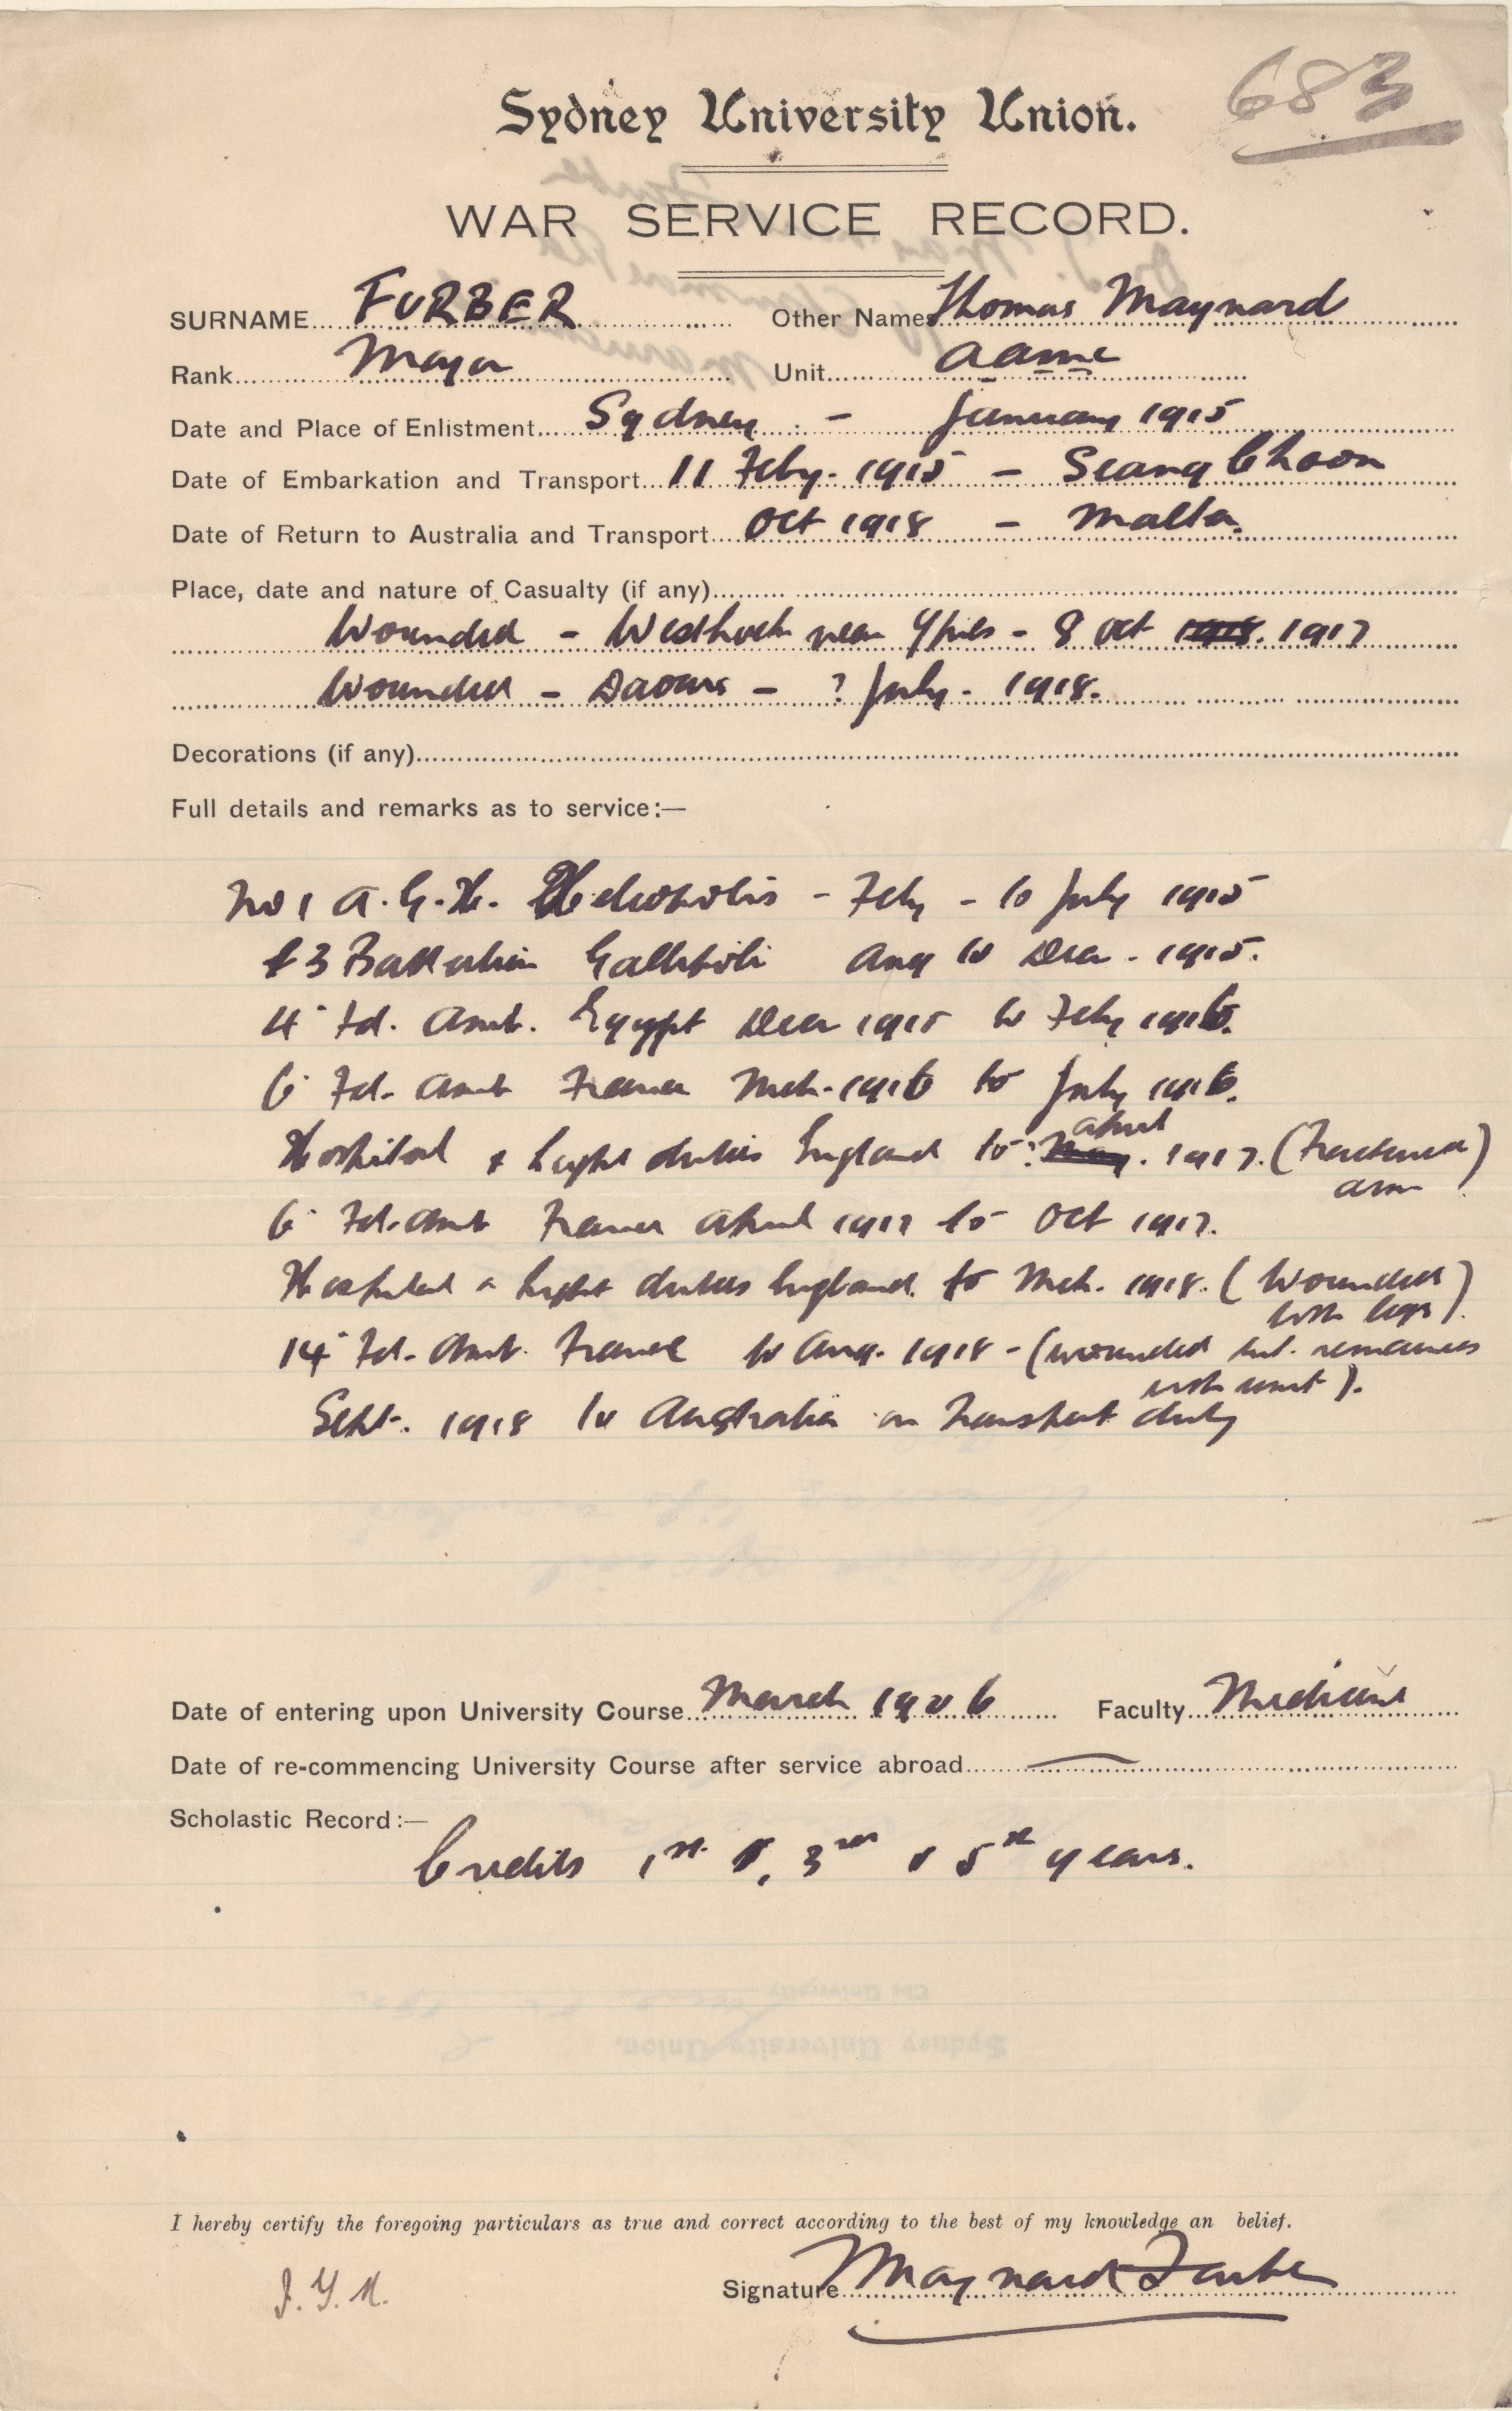 683
Sydney University Union.
WAR SERVICE RECORD.
SURNAME... FURBER Other Names Thomas Maynard
Rank... Major Unit... AAMC
Date and Place of Enlistment... Sydney - January 1915
Date of Embarkation and Transport... 11 Feby. 1915 - Seang Choon
Date of Return to Australia and Transport... Oct 1918 - Malta.
Place, date and nature of Casualty (if any)...
Wounded - Westhoek near Ypres - 8 Oct 1918. 1917
Wounded - Daours - ? July - 1918.
Decorations (if any)...
Full details and remarks as to service:—
No 1 A.G.H. Heliopolis - Feby - to July 1915
Battalion Gallipoli Aug to Decr. 1915.
4 Fd. Amb. Egypt Decr 1915 to Feby 1916.
6 Fd. Amb France Mch. 1916 to July 1916.
Hospital & Light duties England to April 1917. (Fractured
arm)
6 Fd. Amb France April 1917 to Oct 1917.
Hospital & Light duties England to Mch. 1918. (Wounded
both legs).
14 Fd. Amb. France to Aug. 1918 - (wounded but remained
with unit).
Sept. 1918 to Australia on Transport duty
Date of entering upon University Course... March 1906 Faculty... Medicine
Date of re-commencing University Course after service abroad... —
Scholastic Record:—
Credits 1st, 3rd & 5th years.
I hereby certify the foregoing particulars as true and correct according to the best of my knowledge an belief.
Signature... Maynard Furber